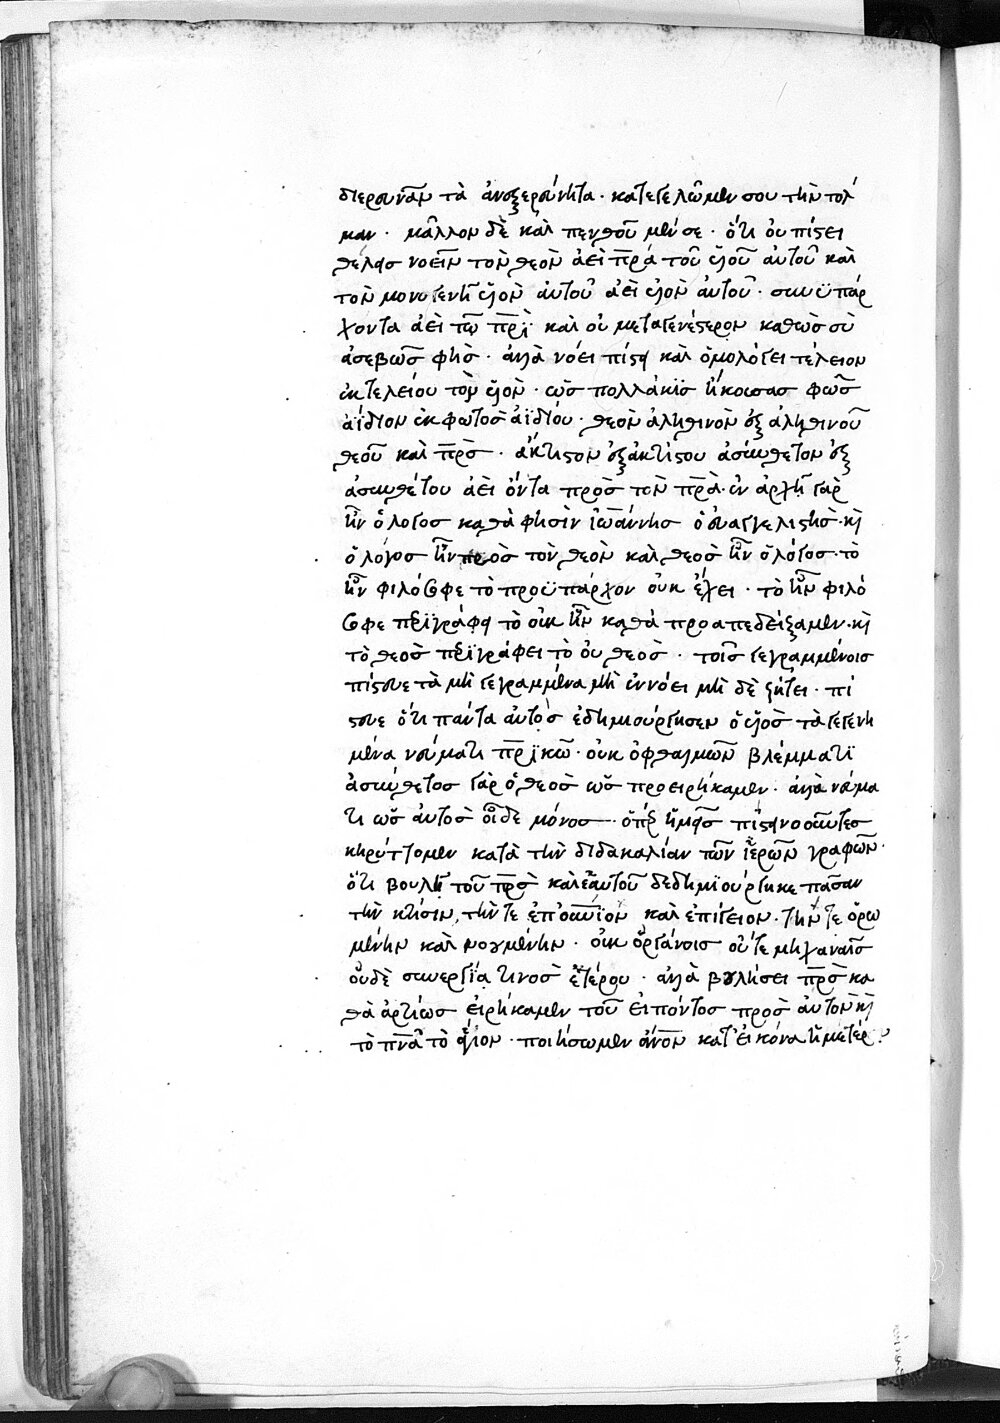 διερευνᾶν τὰ ἀνεξερεύνητα · κατεγελῶμεν σου τὴν τόλ
μαν · μᾶλλον δὲ καὶ πενθοῦμέν σε · ὅτι οὐ πίστει
θέλεις νοεῖν τὸν θεὸν ἀεὶ πρ̅α τοῦ υἱοῦ αὐτοῦ καὶ
τὸν μονογενῆ υἱὸν αὐτοῦ ἀεὶ υἱὸν αὐτοῦ · συνϋπάρ
χοντα ἀεὶ τῷ πρ̅ι · καὶ οὐ μεταγενέστερον καθὼς σὺ
ἀσεβῶς φὴς · ἀλλὰ νόει πίστει καὶ ὁμολόγει τέλειον
ἐκ τελείου τὸν υἱὸν · ὡς πολλάκϊς ἤκουσας φῶς
ἀΐδιον ἐκ φωτὸς ἀϊδίου · θεὸν ἀληθινὸν ἐξ ἀληθινοῦ
θεοῦ καὶ πρ̅ς · ἄκτιστον ἐξ ἀκτίστου ἀσύνθετον ἐξ
ἀσυνθέτου ἀεὶ ὄντα πρὸς τὸν πρ̅α · ἐν ἀρχῇ γὰρ
ἦν ὁ λόγος καθά φησὶν ἰωάννης ὁ εὐαγγελιστὴς · κὶ
ὁ λόγος ἦν πρὸς τὸν θεὸν καὶ θεὸς ἦν ὁ λόγος · τὸ
ἦν φιλόσοφε τὸ προϋπάρχον οὐκ ἔχει · τὸ ἦν φιλό
σοφε περϊγράφει τὸ οὐκ ἦν καθὰ προαπεδείξαμεν · κὶ
τὸ θεὸς περϊγράφει τὸ οὐ θεὸς · τοῖς γεγραμμένοις
πίστευε τὰ μὴ γεγραμμένα μὴ ἐννόει μὴ δὲ ζήτει · πί
στευε ὅτι πάντα αὐτὸς ἐδημιούργησεν ὁ υἱὸς τὰ γεγενη
μένα νεύματι πρ̅ϊκῶ · οὐκ ὀφθαλμῶν βλέμματϊ
ἀσύνθετος γὰρ ὁ θεὸς ὡς προειρήκαμεν · ἀλλὰ νεύμα
τι ὡς αὐτὸς οἶδε μόνος · ὅπερ ἡμεῖς πίστει νοοῦντες
κηρύττομεν κατὰ τὴν διδακαλίαν τῶν ἱερῶν γραφῶν ·
ὅτι βουλῇ τοῦ πρ̅ς καὶ ἑαυτοῦ δεδημϊούργηκε πᾶσαν
τὴν κτίσιν, τήν τε ἐπουν̅ϊον καὶ ἐπίγειον · τήν τε ὁρω
μένην καὶ νοουμένην · οὐκ ὀργάνοις οὔτε μηχαναῖς
οὐδὲ συνεργίᾳ τινὸς ἑτέρου · ἀλλὰ βουλήσει πρ̅ς κα
θὰ ἀρτίως εἰρήκαμεν τοῦ εἰπόντος πρὸς αὐτὸν κὶ
τὸ πν̅α τὸ ἅγιον · ποιήσωμεν ἄν̅ον κατ' εἰκόνα ἡμετέρ